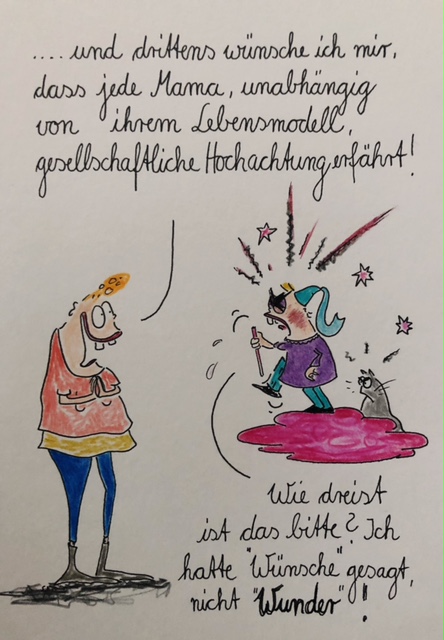 .... und drittens wünsche ich mir,
dass jede Mama, unabhängig
von ihrem Lebensmodell,
gesellschaftliche Hochachtung erfährt!
Wie dreist
ist das bitte? Ich
hatte "Wünsche" gesagt,
nicht "Wunder"!